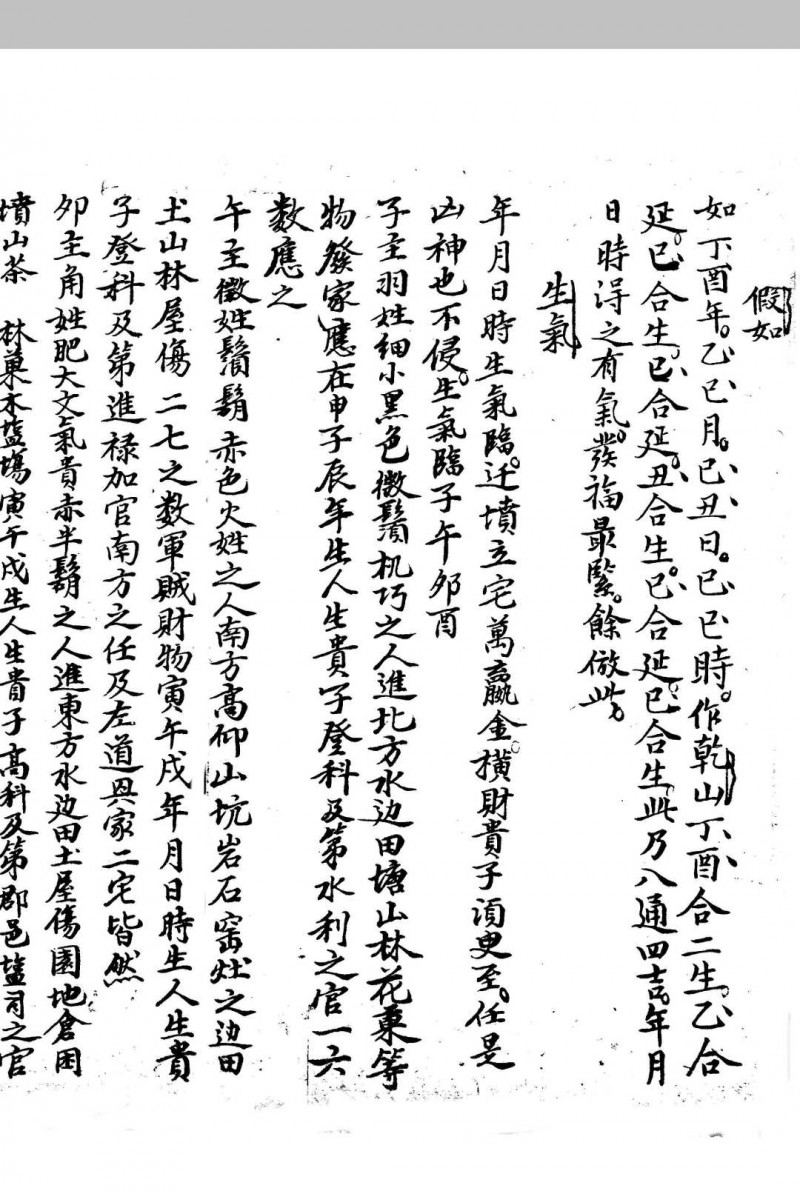 假如
如丁酉年。乙巳月。己丑日。己巳時。作乾山丁酉合二生。乙合
延。巳合生。己合延。丑合生。己合延。巳合生。此乃八通四吉。年月
日時得之有氣。發福最緊。餘倣此。
生氣
年月日時生氣臨。迁墳立宅萬贏金。橫財貴子須臾至。任是
凶神也不侵。生氣臨子午夘酉
子主羽姓細小黑色微鬚机巧之人進北方水边田塘山林花菓等
物發家應在申子辰年生人生貴子登科及第水利之官一六
数應之
午主徵姓鬚鬍赤色火姓之人南方高仰山坑岩石窑灶之边田
土山林屋傷二七之数軍賊財物寅午戌年月日時生人生貴
子登科及第進禄加官南方之任及左道興家二宅皆然
夘主角姓肥大文氣貴赤半鬍之人進東方水边田土屋傷園地倉囷
墳山茶 林菓木塩塲寅午戌生人生貴子高科及第郡邑塩司之官